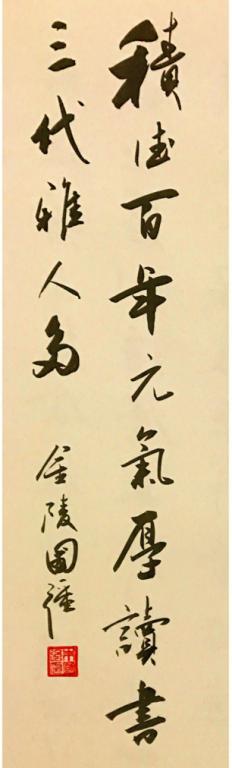 積德百年元氣厚讀書
三代雅人多
金陵國強